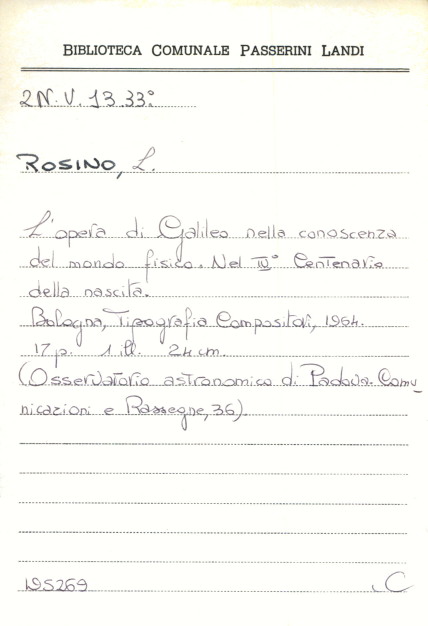 BIBLIOTECA COMUNALE PASSERINI LANDI
2N.V.13.33°
ROSINO, L.
L'opera di Galileo nella conoscenza
del mondo fisico. Nel IV° Centenario
della nascita.
Bologna, Tipografia Compositori, 1964.
17 p. 1 ill. 24 cm.
(Osservatorio astronomico di Padova. Comu-
nicazioni e Rassegne, 36).
C